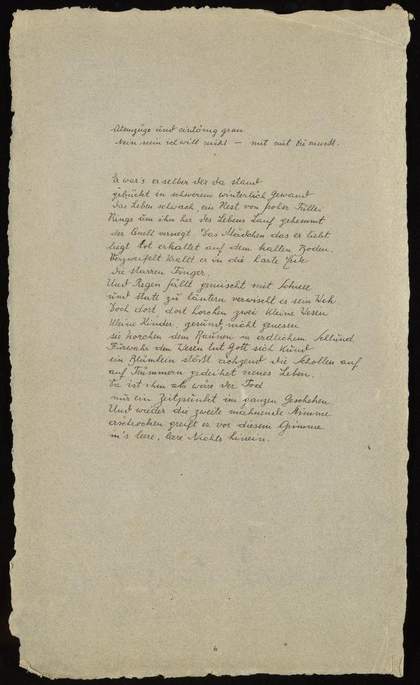 Atemzüge und eintönig grau
Nein nein ich will nicht — mit mit Du musst.
Er war's er selber der da stand
gebückt in schwerem winterlich Gewand
Das Leben schwach, ein Rest von hoher Fülle.
Rings um ihn her des Lebens Lauf gehemmt
der Quell versiegt. Das Mädchen das er liebt
liegt tot erkaltet auf dem kalten Boden.
Verzweifelt krallt er in die harte
die starren Finger.
Und Regen fällt gemischt mit Schnee
und statt zu läutern verwischt es sein Weh.
Doch dort dort horchen zwei kleine Wesen
kleine Kinder, gesund, nicht genesen
sie horchen dem Raunen in erdlichem Schlund
Fürwahr den Wesen tut Gott sich kund
ein Blümlein stößt ächzend die Schollen auf
auf Trümmern gedeihet neues Leben.
Da ist ihm als wäre der Tod
nur ein Zeitpunkt im ganzen Geschehen
Und wieder die zweite mahnende Stimme
erschrocken greift er vor diesem Grimme
in's leere, leere Nichts hinein.
6